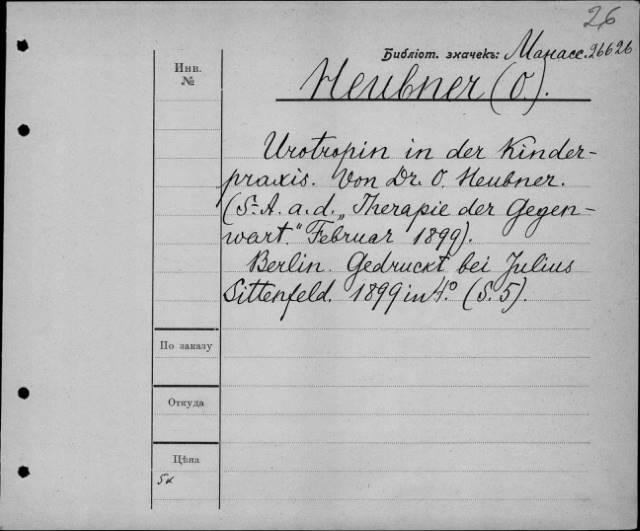 26
Библіот. значекъ: Манасс. 26626
Инв.
№
Heubner (O.).
Urotropin in der Kinder-
praxis. Von Dr. O. Heubner.
(S.-A. a. d. „Therapie der Gegen-
wart.“ Februar 1899).
Berlin. Gedruckt bei Julius
Sittenfeld. 1899 in 4.° (S. 5).
По заказу
Откуда
Цѣна
5к